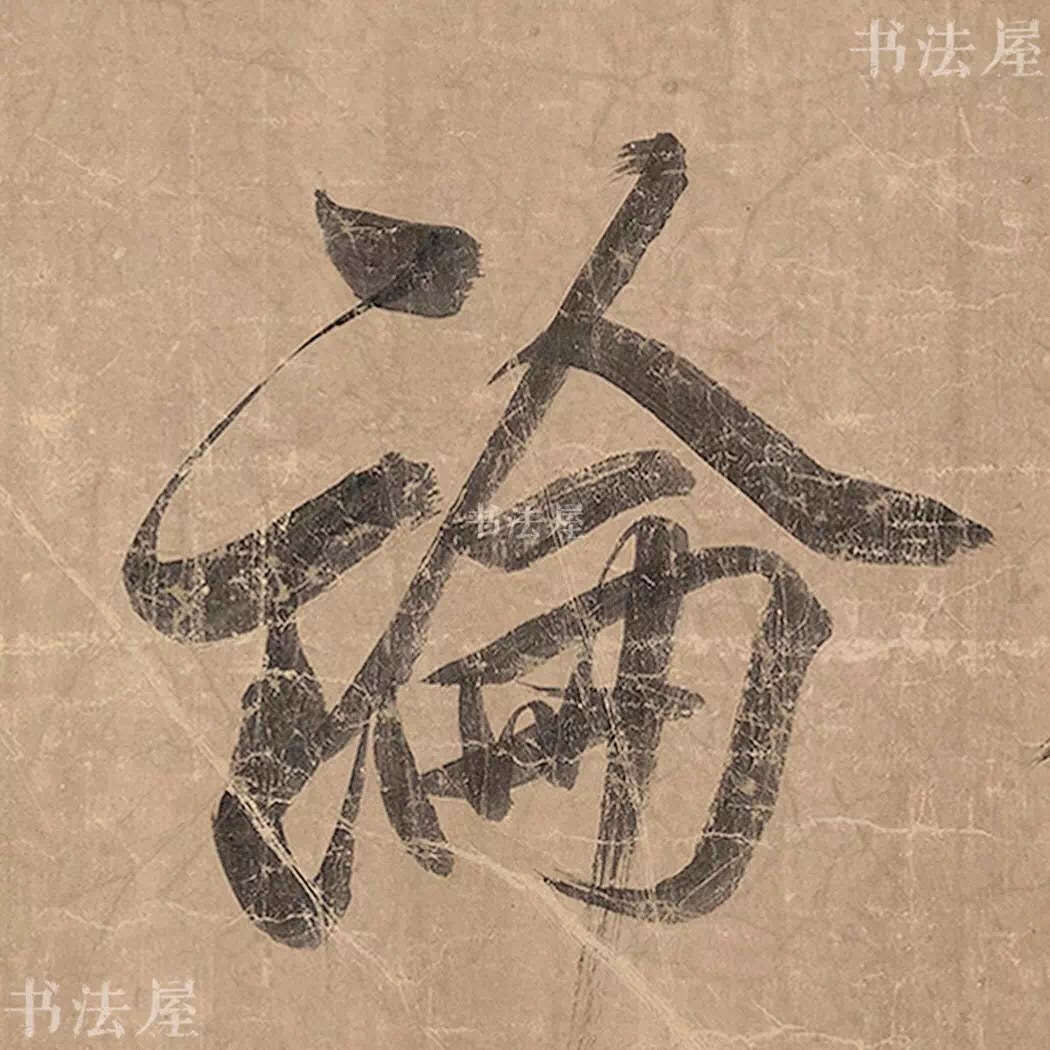 书法屋
論
书法屋
书法屋